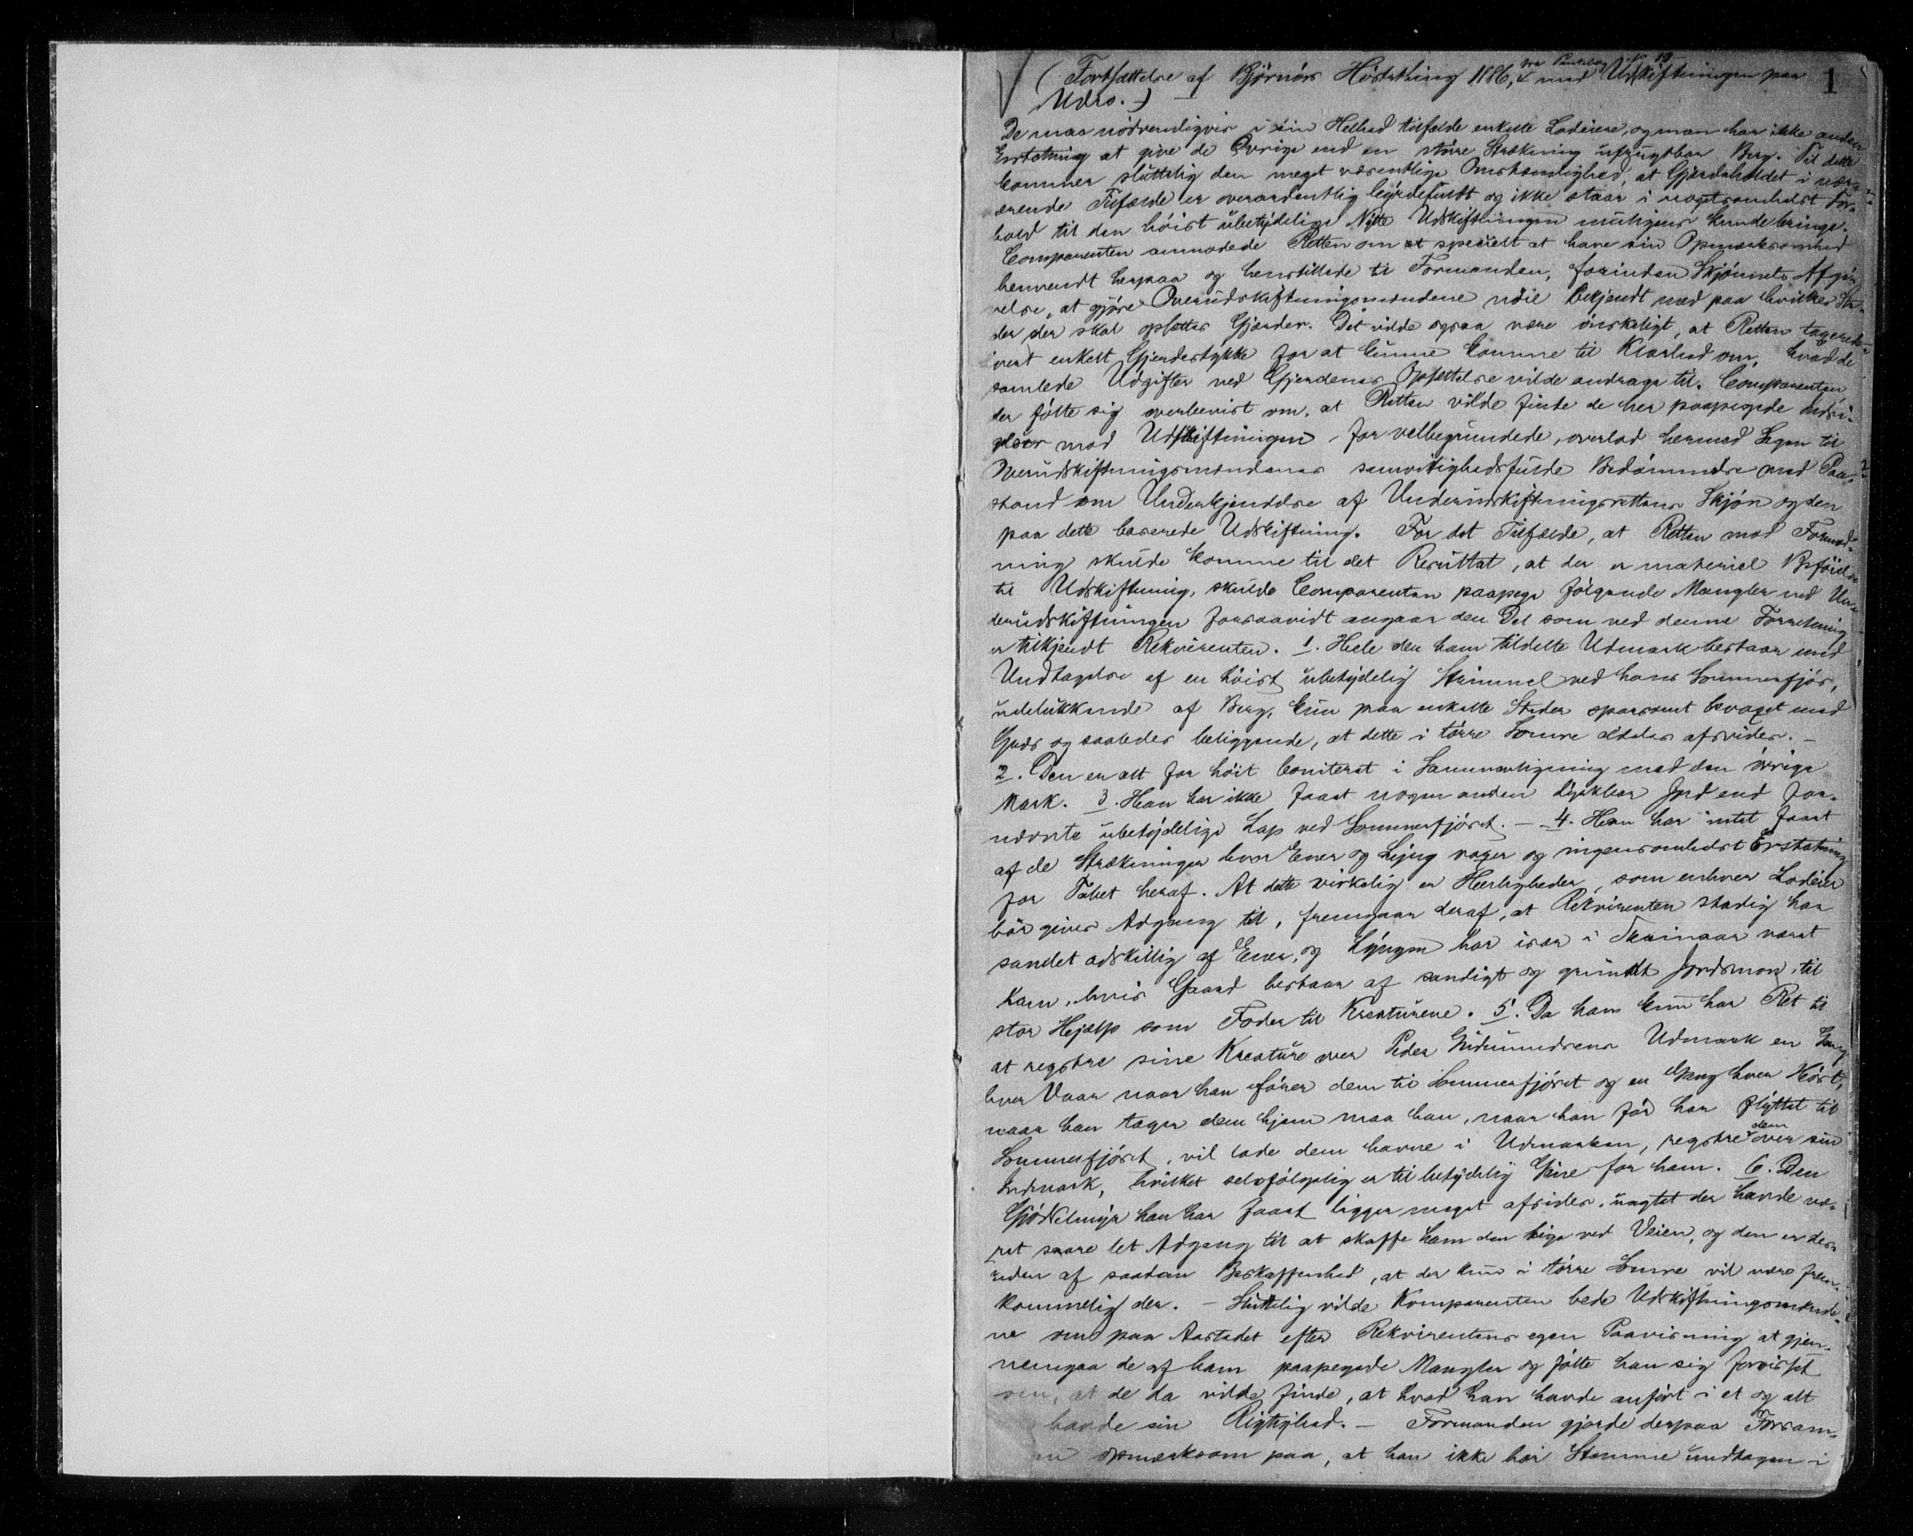 1
fra Pantebog No 12
(Fortsættelse af Bjørnørs Høstthing 1886, med Udskiftningen paa
Udro.)
De maa nødvendigvis i sin Helhed tilfalde enkelte Lodeiere, og man har ikke anden
Erstatning at give de Øvrige end en større Strækning ufrugtbar Berg. Til dette
kommer sluttelig den meget væsentlige Omstændighed, at Gjerdeholdet i nærv-
ærende Tilfælde er overordentlig byrdefuldt og ikke staar i nogetsomhelst For-
hold til den høist ubetydelige Nytte Udskiftningen muligens kunde bringe.
Comparenten anmodede Retten om at specielt at have sin Opmærksomhed
henvendt herpaa og henstillede til Formanden, forinden Skjønnets Afgi-
velse, at gjøre Overudskiftningsmændene nøie bekjendt med paa hvilke Ste-
der der skal opsættes Gjærder. Det vilde ogsaa være ønskeligt, at Retten
hvert enkelt Gjerdestykke for at kunne komme til Klarhed om, hvad de
samlede Udgifter ved Gjerdenes Opsættelse vilde andrage til. Comparenten
der følte sig overbevist om, at Retten vilde finde de her paapegede Indsi-
gelser mod Udskiftningen for velbegrundede, overlod hermed Sagen til
Overudskiftningsmændenes samvittighedsfulde Bedømmelse med Paa-
stand om Underkjendelse af Underudskiftningsrettens Skjøn og den
paa dette baserede Udskiftning. For det Tilfælde, at Retten mod Formod-
ning skulde komme til det Resultat, at der er materiel Beføielse
til Udskiftning, skulde Comparenten paapege følgende Mangler ved Un-
derudskiftningen forsaavidt angaar den Del som ved denne Forretning
er tilkjendt Rekvirenten. 1. Hele den ham tildelte Udmark bestaar med
Undtagelse af en høist ubetydelig Strimmel ved hans Sommerfjøs,
udelukkende af Berg, kun paa enkelte Steder sparsomt bevoxet med
Græs og saaledes beliggende, at dette i tørre Somre aldeles afsvides. –
2. Den er alt for høit boniteret i Sammenligning med den øvrige
Mark. 3. Han har ikke faaet nogen anden dyrkbar Jord end for-
nævnte ubetydelige Lap ved Sommerfjøset. – 4. Han har intet faaet
af de Strækninger hvor Ener og Lyng voxer og ingensomhelst Erstatning
for Tabet heraf. At dette virkelig er Herligheder, som enhver Lodeier
bør gives Adgang til, fremgaar deraf, at Rekvirenten stadig har
sandet adskillig af Ener, og Lyngen har især i været
ham, hvis Gaard bestaar af sandigt og grundt Jordsmon, til
stor Hjælp som Foder til Kreaturene. 5. Da han kun har Ret til
at regstre sine Kreature over Peder Gudmundsens Udmark en Gang
hver Vaar naar han fører dem til Sommerfjøset og en Gang hver Høst,
naar han tager dem hjem maa han, naar han før har flyttet til
Sommerfjøset, vil lade dem havne i Udmarken, regstre dem over sin
Indmark, hvilket selvfølgelig er til betydelig Gene for ham. 6. Den
Gjødselmyr han har faaet ligger meget afsides, uagtet der havde væ-
ret saare let Adgang til at skaffe ham den lige ved Veien, og den er des-
uden af saadan Beskaffenhed, at der kun i tørre Somre vil være frem-
kommelig der. – Sluttelig vilde Komparenten bede Udskiftningsmænde-
ne om paa Aastedet efter Rekvirentens egen Paavisning at gjen-
nemgaa de af ham paapegede Mangler og følte han sig forvisset
om, at de da vilde finde, at hvad han havde anført i et og alt
havde sin Rigtighed. – Formanden gjorde derpaa Forsam-
opmærksom paa, at han ikke har Stemme undtagen i